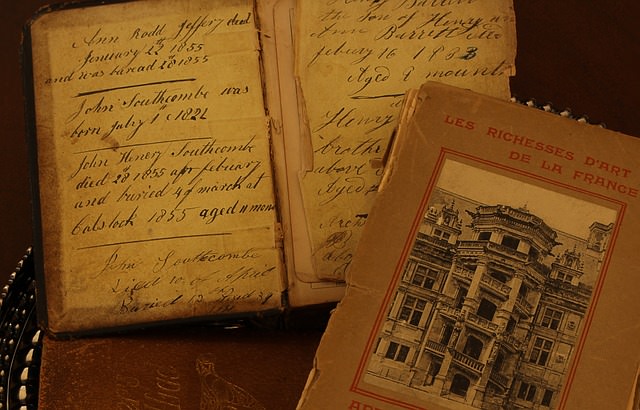 Ann Rodd Jeffery died
January 22 1855
and was buread 28 1855
John Southcombe was
born July 1st 1822
John Henery Southcombe
died 28 1855 feburary
and buried 4 of march at
Calstock 1855 aged 11 mon
John Southcombe
Died 10 of April
Buried 13
the Son of Henery
Ann Barrett
febury 16 1883
Aged 8 mounth
Henry
brothe
above
Aged
LES RICHESSES D'ART
DE LA FRANCE